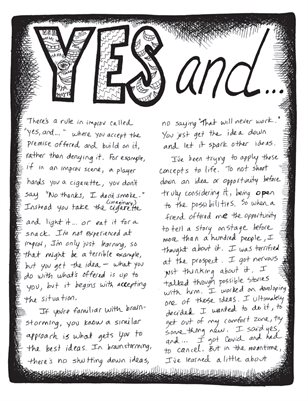 YES and...
There's a rule in improv called
"yes, and..." where you accept the
premise offered and build on it,
rather than denying it. For example,
if in an improv scene, a player
hands you a cigarette, you don't
say "No thanks, I don't smoke."
(imaginary)
Instead you take the cigarette
and light it... or eat it for a
snack. I'm not experienced at
improv, I'm only just learning, so
that might be a terrible example,
but you get the idea — what you
do with what's offered is up to
you, but it begins with accepting
the situation.
If you're familiar with brain-
storming, you know a similar
approach is what gets you to
the best ideas. In brainstorming,
there's no shutting down ideas,
no saying "That will never work."
You just get the idea down
and let it spark other ideas.
I've been trying to apply these
concepts to life. To not shoot
down an idea or opportunity before
truly considering it, being open
to the possibilities. So when a
friend offered me the opportunity
to tell a story onstage before
more than a hundred people, I
thought about it. I was terrified
at the prospect. I got nervous
just thinking about it. I
talked though possible stories
with him. I worked on developing
one of these ideas. I ultimately
decided I wanted to do it, to
get out of my comfort zone, try
something new. I said yes,
and... I got Covid and had
to cancel. But in the meantime
I've learned a little about